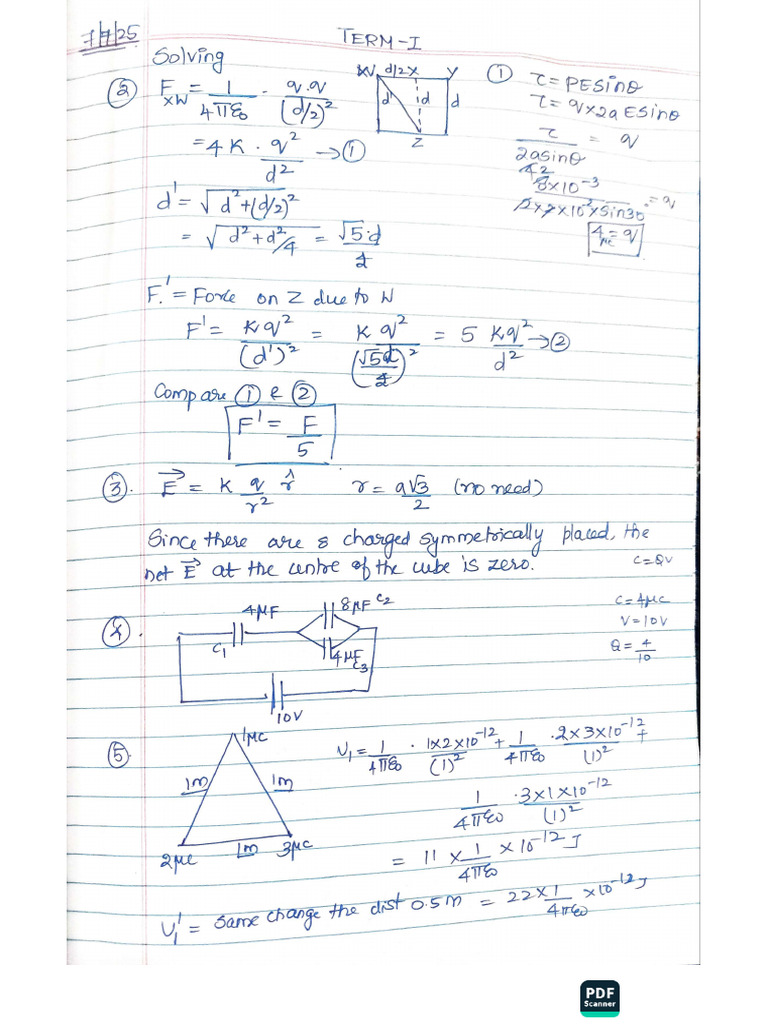 7/7/25
TERM-I
Solving
② F_xW = 1/4πε₀ · q.q/(d/2)²
= 4K · q²/d² → ①
d' = √d²+(d/2)²
= √d²+d²/4 = √5.d/2
W d/2 X Y
d' d d
Z
① τ = PEsinθ
τ = q×2a Esinθ
τ/2asinθ = q
8×10⁻³/2×2×10⁻²×sin30 = q
4μc = q
F.' = Force on Z due to W
F' = Kq²/(d')² = Kq²/(√5d/2)² = 5 Kq²/d² → ②
Compare ① & ②
F' = F/5
③. E⃗ = K q/r² r̂ r = a√3/2 (no need)
Since there are 8 charged symmetrically placed, the
net E⃗ at the centre of the cube is zero.
C=QV
C=4μc
V=10V
Q = 4/10
④.
4μF 8μF C2
C1 4μF C3
10V
⑤.
1μC
1m 1m
2μC 1m 3μC
U₁ = 1/4πε₀ · 1×2×10⁻¹²/(1)² + 1/4πε₀ · 2×3×10⁻¹²/(1)² +
1/4πε₀ · 3×1×10⁻¹²/(1)²
= 11 × 1/4πε₀ × 10⁻¹² J
U₁' = same change the dist 0.5m = 22×1/4πε₀ ×10⁻¹² J
PDF
Scanner